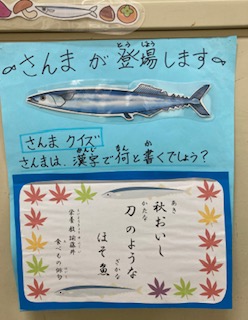 さんまが登場します
さんま クイズ
さんまは、漢字で何と書くでしょう？
秋おいし
刀のような
ほそ魚
食べもの